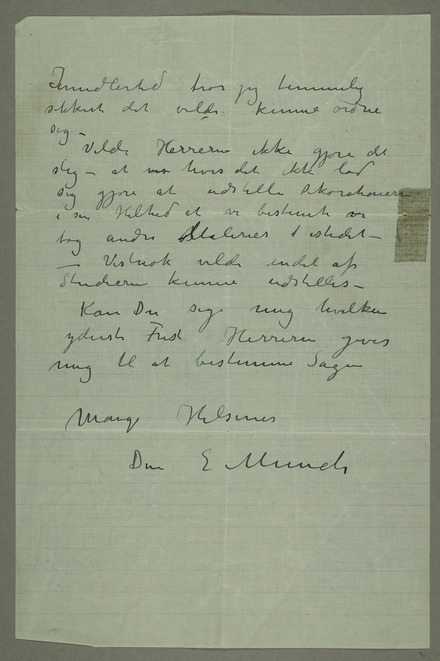 Imidlertid tror jeg temmelig
sikkert det vilde kunne ordne
sig –
Vilde Herrerne ikke gjøre det
slig – at hvis det ikke lod
sig gjøre at udstille Dekorationerne
i sin Helhed at vi bestemte vi
tog andre Malerier i istedet –
– Vistnok vilde endel af
Studierne kunne udstilles –
Kan Du sige mig hvilken
yderste Frist Herrerne giver
mig til at bestemme Sagen
Mange Hilsener
Din E Munch